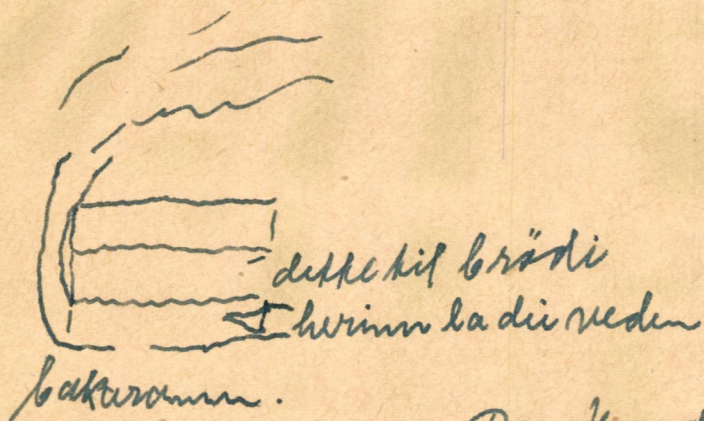 dette til brödi
herinn la dei veden
bakaromn.